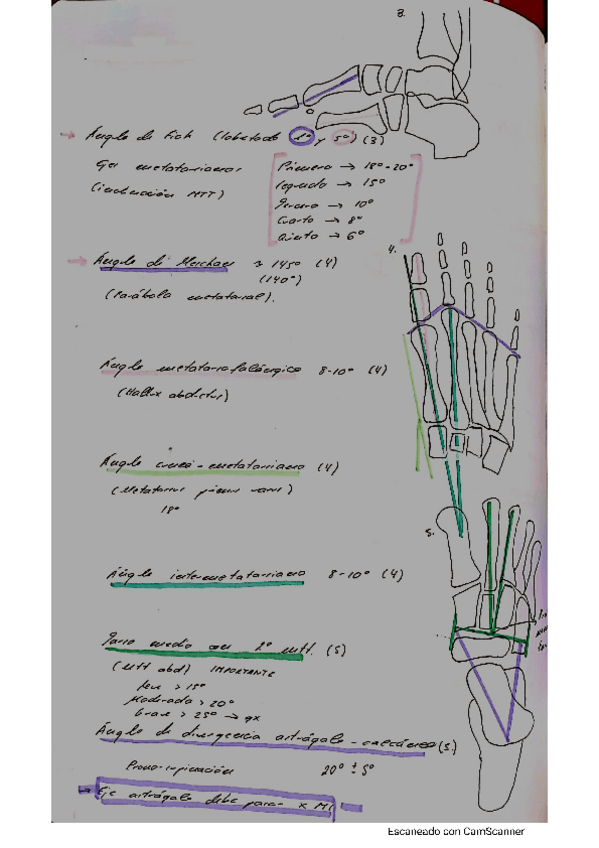 3.
→ Ángulo de Fick (Lobetado 1º y 5º) (3)
Eje metatarsianos
(inclinación MTT)
Primero → 18º-20º
Segundo → 15º
Tercero → 10º
Cuarto → 8º
Quinto → 6º
4.
→ Ángulo de Meschan ≈ 145º (4)
(140º)
(Parábola metatarsal).
Ángulo metatarsofalángico 8-10º (4)
(Hallux abductus)
Ángulo cuneo-metatarsiano (4)
(Metatarsus primus varus)
18º
5.
Ángulo intermetatarsiano 8-10º (4)
2º mtt. (5)
(Mtt abd) IMPORTANTE
leve > 15º
Moderada > 20º
Grave > 25º → qx
Ángulo de divergencia astrágalo-calcáneo (5)
Prono-supinación 20º ± 5º
→ Eje astrágalo debe pasar x M1
Escaneado con CamScanner